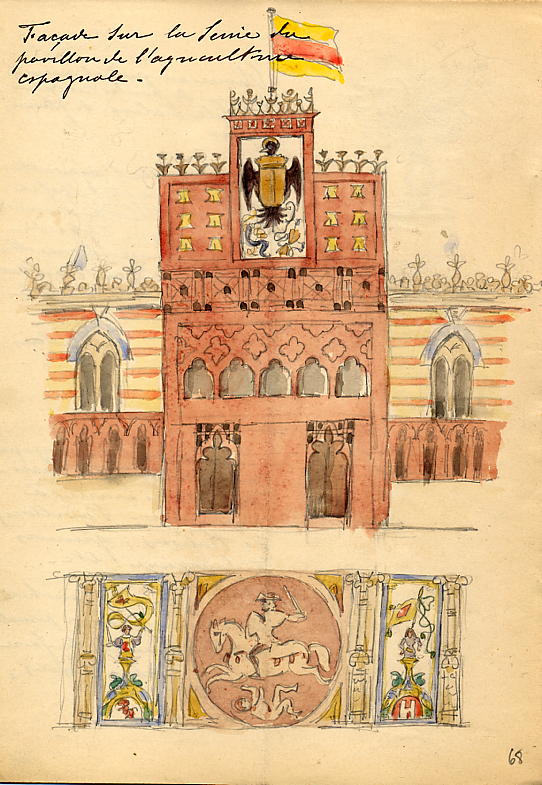 Façade sur la Seine du
pavillon de l'agriculture
espagnole.
H
68